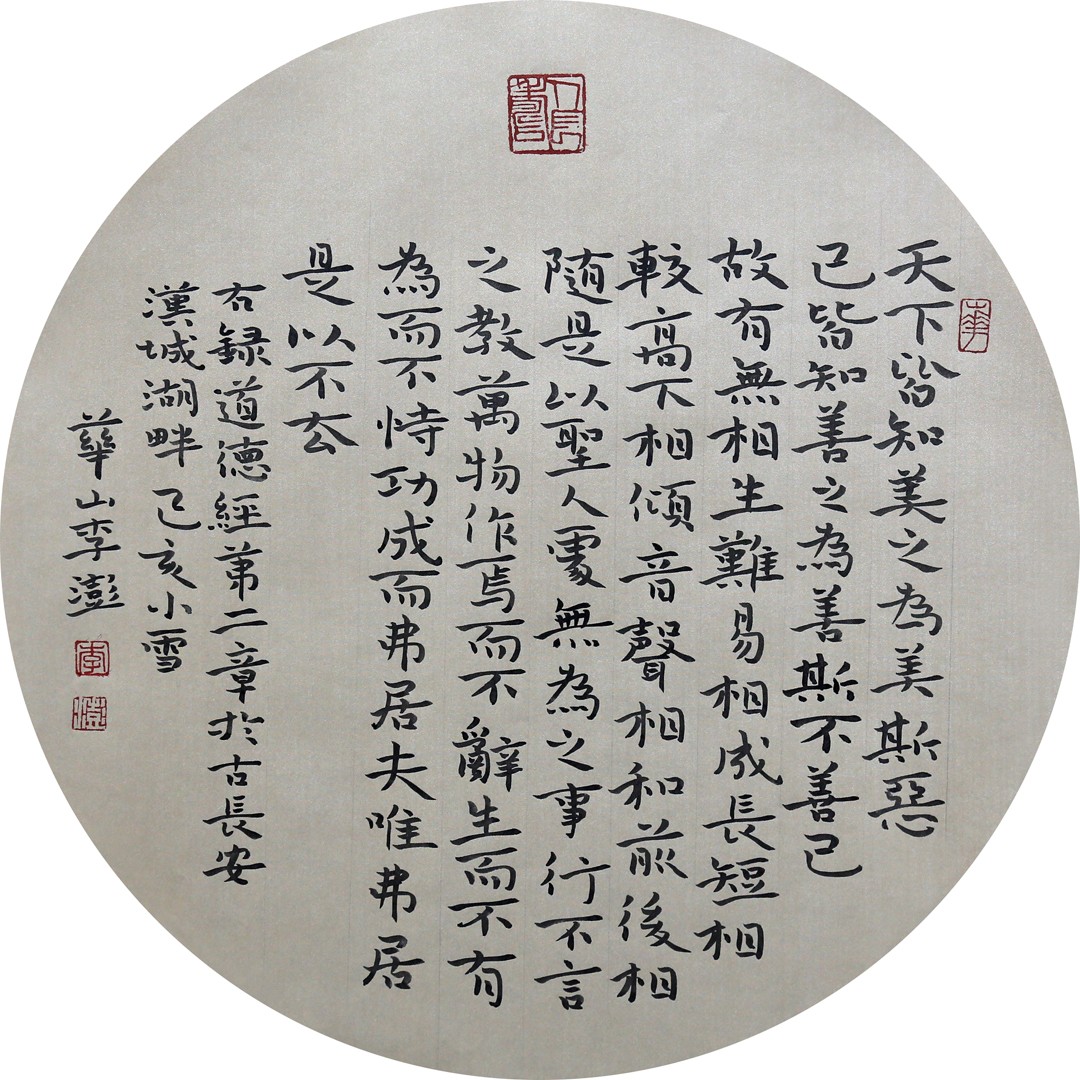 天下皆知美之為美斯惡
已皆知善之為善斯不善已
故有無相生難易相成長短相
較高下相傾音聲相和前後相
随是以聖人處無為之事行不言
之教萬物作焉而不辭生而不有
為而不恃功成而弗居夫唯弗居
是以不去
右録道德經第二章於古長安
漢城湖畔己亥小雪
華山李澎
李
澎